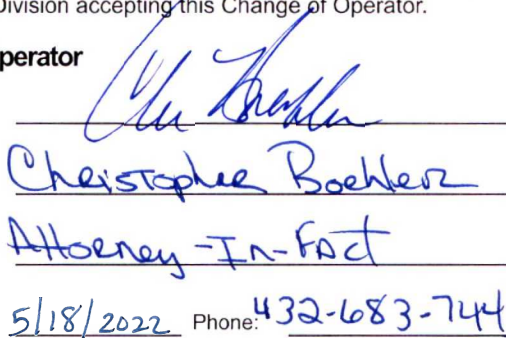 Division accepting this Change of Operator.
perator
Christopher Boehler
Attorney-In-Fact
5/18/2022 Phone: 432-683-744